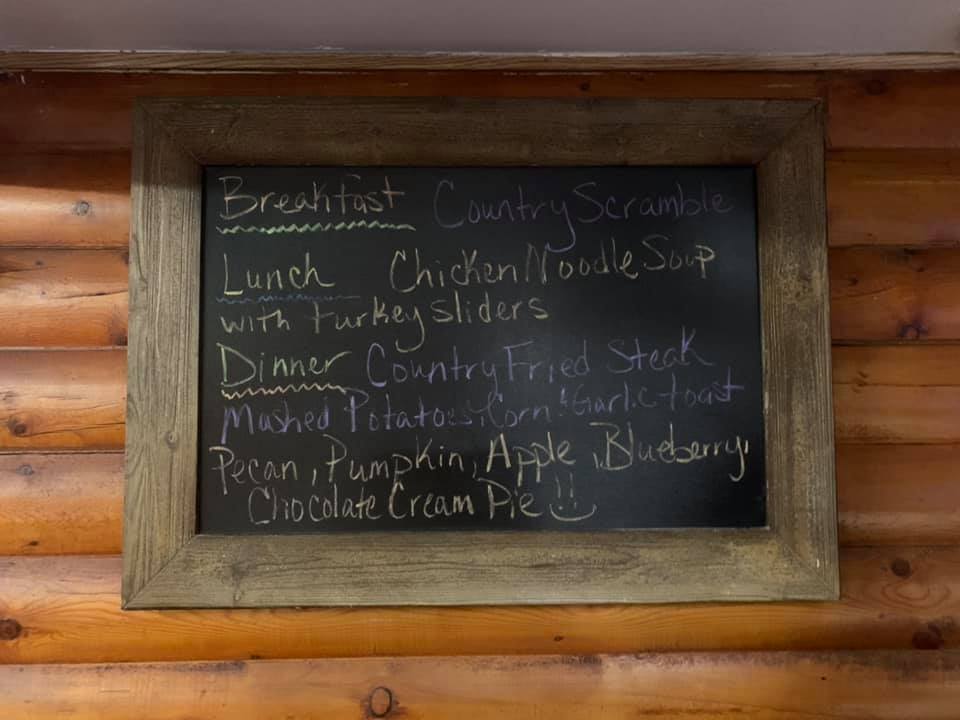 Breakfast Country Scramble
Lunch Chicken Noodle Soup
with turkey sliders
Dinner Country Fried Steak
Mashed Potatoes, Corn & Garlic toast
Pecan, Pumpkin, Apple, Blueberry,
Chocolate Cream Pie!!